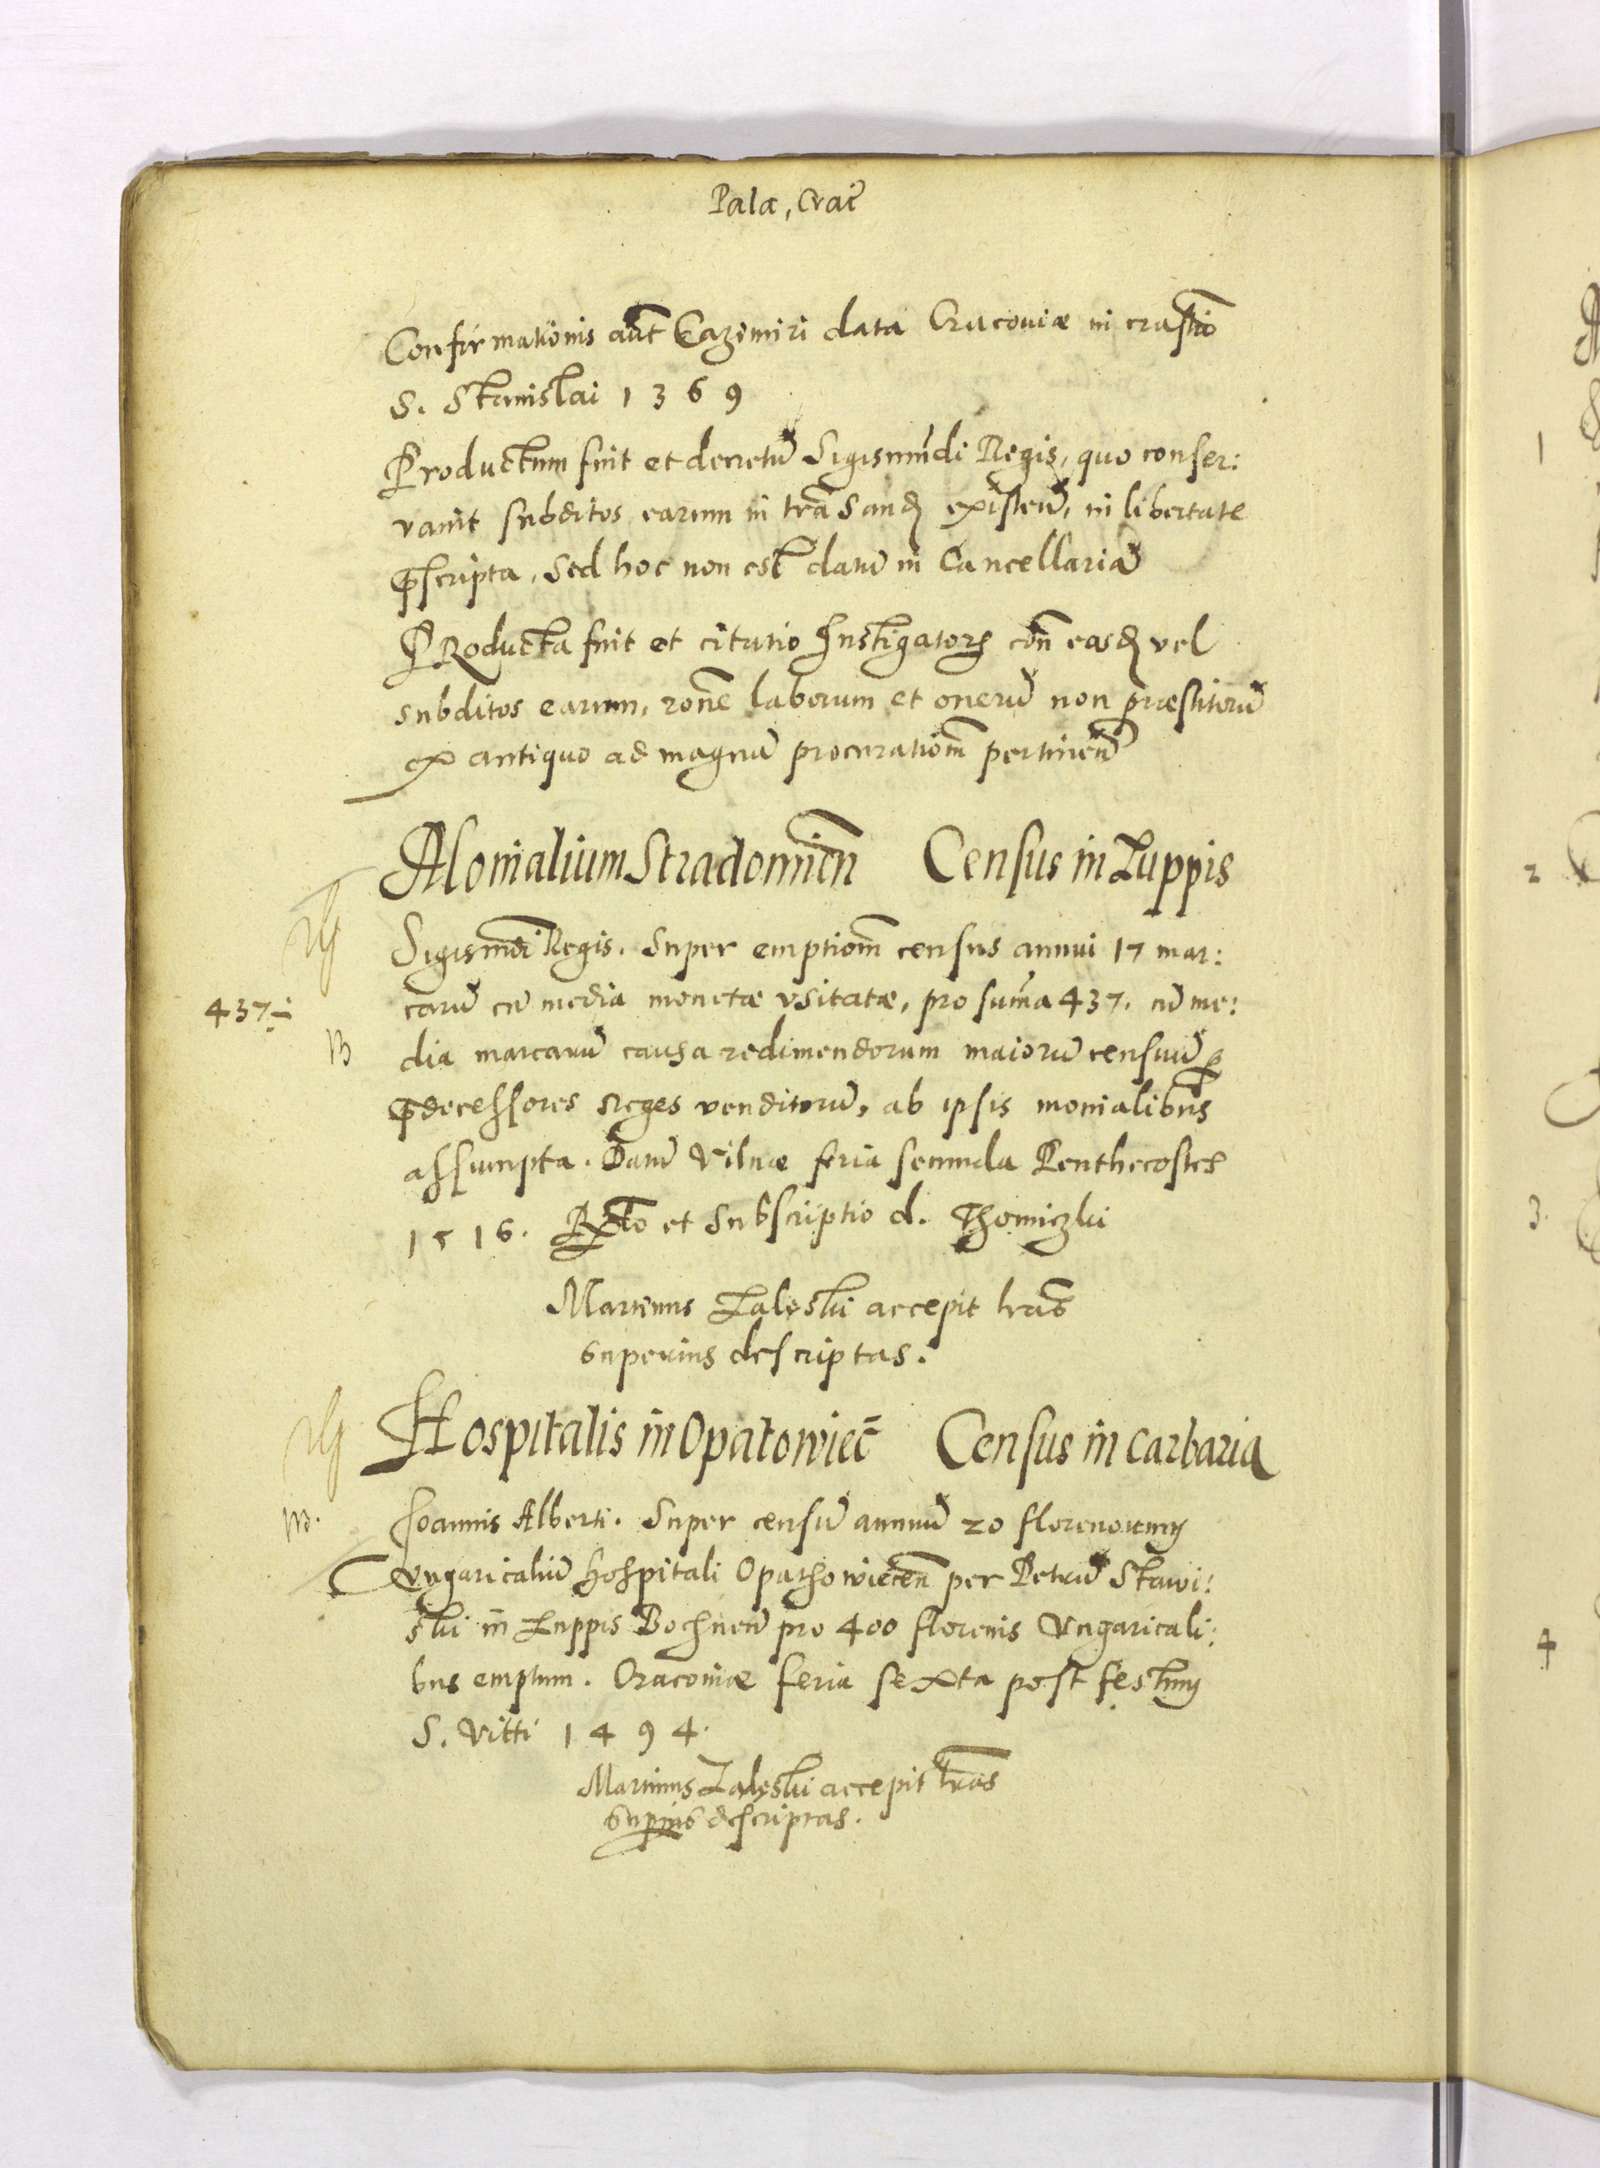 Pala, Crac̃
Confirmationis aut̃ Cazimiri data Cracoviæ in crastiõ
S. Stanislai 1369
Productum fuit et decretũ Sigismũdi Regis, quo conser:
vavit subditos earum in trã Sand existeñ, in libertate
p̄scripta, Sed hoc non est datũ in Cancellariã
PRoducta fuit et citatio Instigatoris con easd vel
subditos earum, rõne laborum et onerũ non præstitorũ
ex antiquo ad magnã procuratiõm pertineñ
Monialium Stradomieñ Census in Zuppis
Sigismũdi Regis. Super emptiõm census annui 17 mar:
437 ÷
carũ cũ media monetæ vsitatæ, pro sum̃a 437. cũ me:
dia marcarũ causa redimendorum maiorũ censuũ p̱
p̄decessores Reges venditorũ, ab ipsis monialibus
assumpta. Datũ Vilnæ feria secunda Penthecostes
1516. Rl̃to et Subscriptio d. Thomiczki
Martinus Zaleski accepit lrãs
superius descriptas.
Hospitalis in Opatowiec̃ Census in Carbaria
Joannis Alberti. Super censũ annuũ 20 florenorum
Vngaricaliũ hospitali Opathowieceñ per Petrũ Stawi:
ski in Zuppis Bochneñ pro 400 florenis Vngaricali:
bus emptum. Cracoviæ feria sexta post festum
S. Vitti 1494.
Martinus Zaleski accepit lrãs
sup̱ius descriptas.
1
2
3.
4